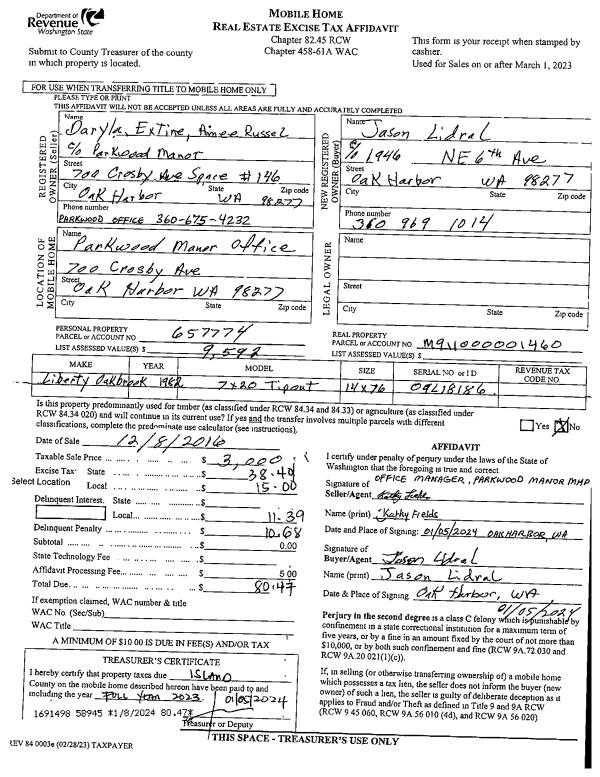 Department of
Revenue
Washington State
MOBILE HOME
REAL ESTATE EXCISE TAX AFFIDAVIT
Chapter 82.45 RCW
Chapter 458-61A WAC
Submit to County Treasurer of the county
in which property is located.
This form is your receipt when stamped by
cashier.
Used for Sales on or after March 1, 2023
FOR USE WHEN TRANSFERRING TITLE TO MOBILE HOME ONLY
PLEASE TYPE OR PRINT
THIS AFFIDAVIT WILL NOT BE ACCEPTED UNLESS ALL AREAS ARE FULLY AND ACCURATELY COMPLETED
REGISTERED
OWNER (Seller)
Name
Daryla, Extine, Aimee Russel
c/o Parkwood Manor
Street
700 Crosby Ave Space #146
City State Zip code
Oak Harbor WA 98277
Phone number
PARKWOOD OFFICE 360-675-4232
NEW REGISTERED
OWNER (Buyer)
Name
Jason Lidral
c/o 1946 NE 6th Ave
Street
Oak Harbor WA 98277
City State Zip code
Phone number
360 969 1014
LOCATION OF
MOBILE HOME
Name
Parkwood Manor Office
700 Crosby Ave
Street
Oak Harbor WA 98277
City State Zip code
LEGAL OWNER
Name
Street
City State Zip code
PERSONAL PROPERTY
PARCEL or ACCOUNT NO 657774
LIST ASSESSED VALUE(S) $ 9,592
REAL PROPERTY
PARCEL or ACCOUNT NO M911000001460
LIST ASSESSED VALUE(S) $
MAKE YEAR MODEL SIZE SERIAL NO or ID REVENUE TAX CODE NO.
Liberty Oakbrook 1982 7x20 Tipout 14x76 09L18186
Is this property predominantly used for timber (as classified under RCW 84.34 and 84.33) or agriculture (as classified under
RCW 84.34 020) and will continue in its current use? If yes and the transfer involves multiple parcels with different
classifications, complete the predominate use calculator (see instructions).
Yes X No
Date of Sale 12/8/2016
Taxable Sale Price $ 3,000
Excise Tax: State $ 38.40
Select Location
Local $ 15.00
Delinquent Interest. State $
Local $ 11.39
Delinquent Penalty $ 10.68
Subtotal $ 0.00
State Technology Fee $
Affidavit Processing Fee $ 5 00
Total Due $ 80.47
If exemption claimed, WAC number & title
WAC No. (Sec/Sub)
WAC Title
A MINIMUM OF $10 00 IS DUE IN FEE(S) AND/OR TAX
AFFIDAVIT
I certify under penalty of perjury under the laws of the State of
Washington that the foregoing is true and correct
Signature of OFFICE MANAGER, PARKWOOD MANOR MHP
Seller/Agent Kathy Fields
Name (print) Kathy Fields
Date and Place of Signing: 01/05/2024 OAK HARBOR, WA
Signature of
Buyer/Agent Jason Lidral
Name (print) Jason Lidral
Date & Place of Signing Oak Harbor, WA
01/05/2024
Perjury in the second degree is a class C felony which is punishable by
confinement in a state correctional institution for a maximum term of
five years, or by a fine in an amount fixed by the court of not more than
$10,000, or by both such confinement and fine (RCW 9A.72 030 and
RCW 9A.20 021(1)(c)).
If, in selling (or otherwise transferring ownership of) a mobile home
which possesses a tax lien, the seller does not inform the buyer (new
owner) of such a lien, the seller is guilty of deliberate deception as it
applies to Fraud and/or Theft as defined in Title 9 and 9A RCW
(RCW 9 45 060, RCW 9A 56 010 (4d), and RCW 9A 56 020)
TREASURER'S CERTIFICATE
I hereby certify that property taxes due ISLAND
County on the mobile home described hereon have been paid to and
including the year FULL YEAR 2023 01/05/2024
1691498 58945 *1/8/2024 80.47*
Treasurer or Deputy
REV 84 0003e (02/28/23) TAXPAYER
THIS SPACE - TREASURER'S USE ONLY